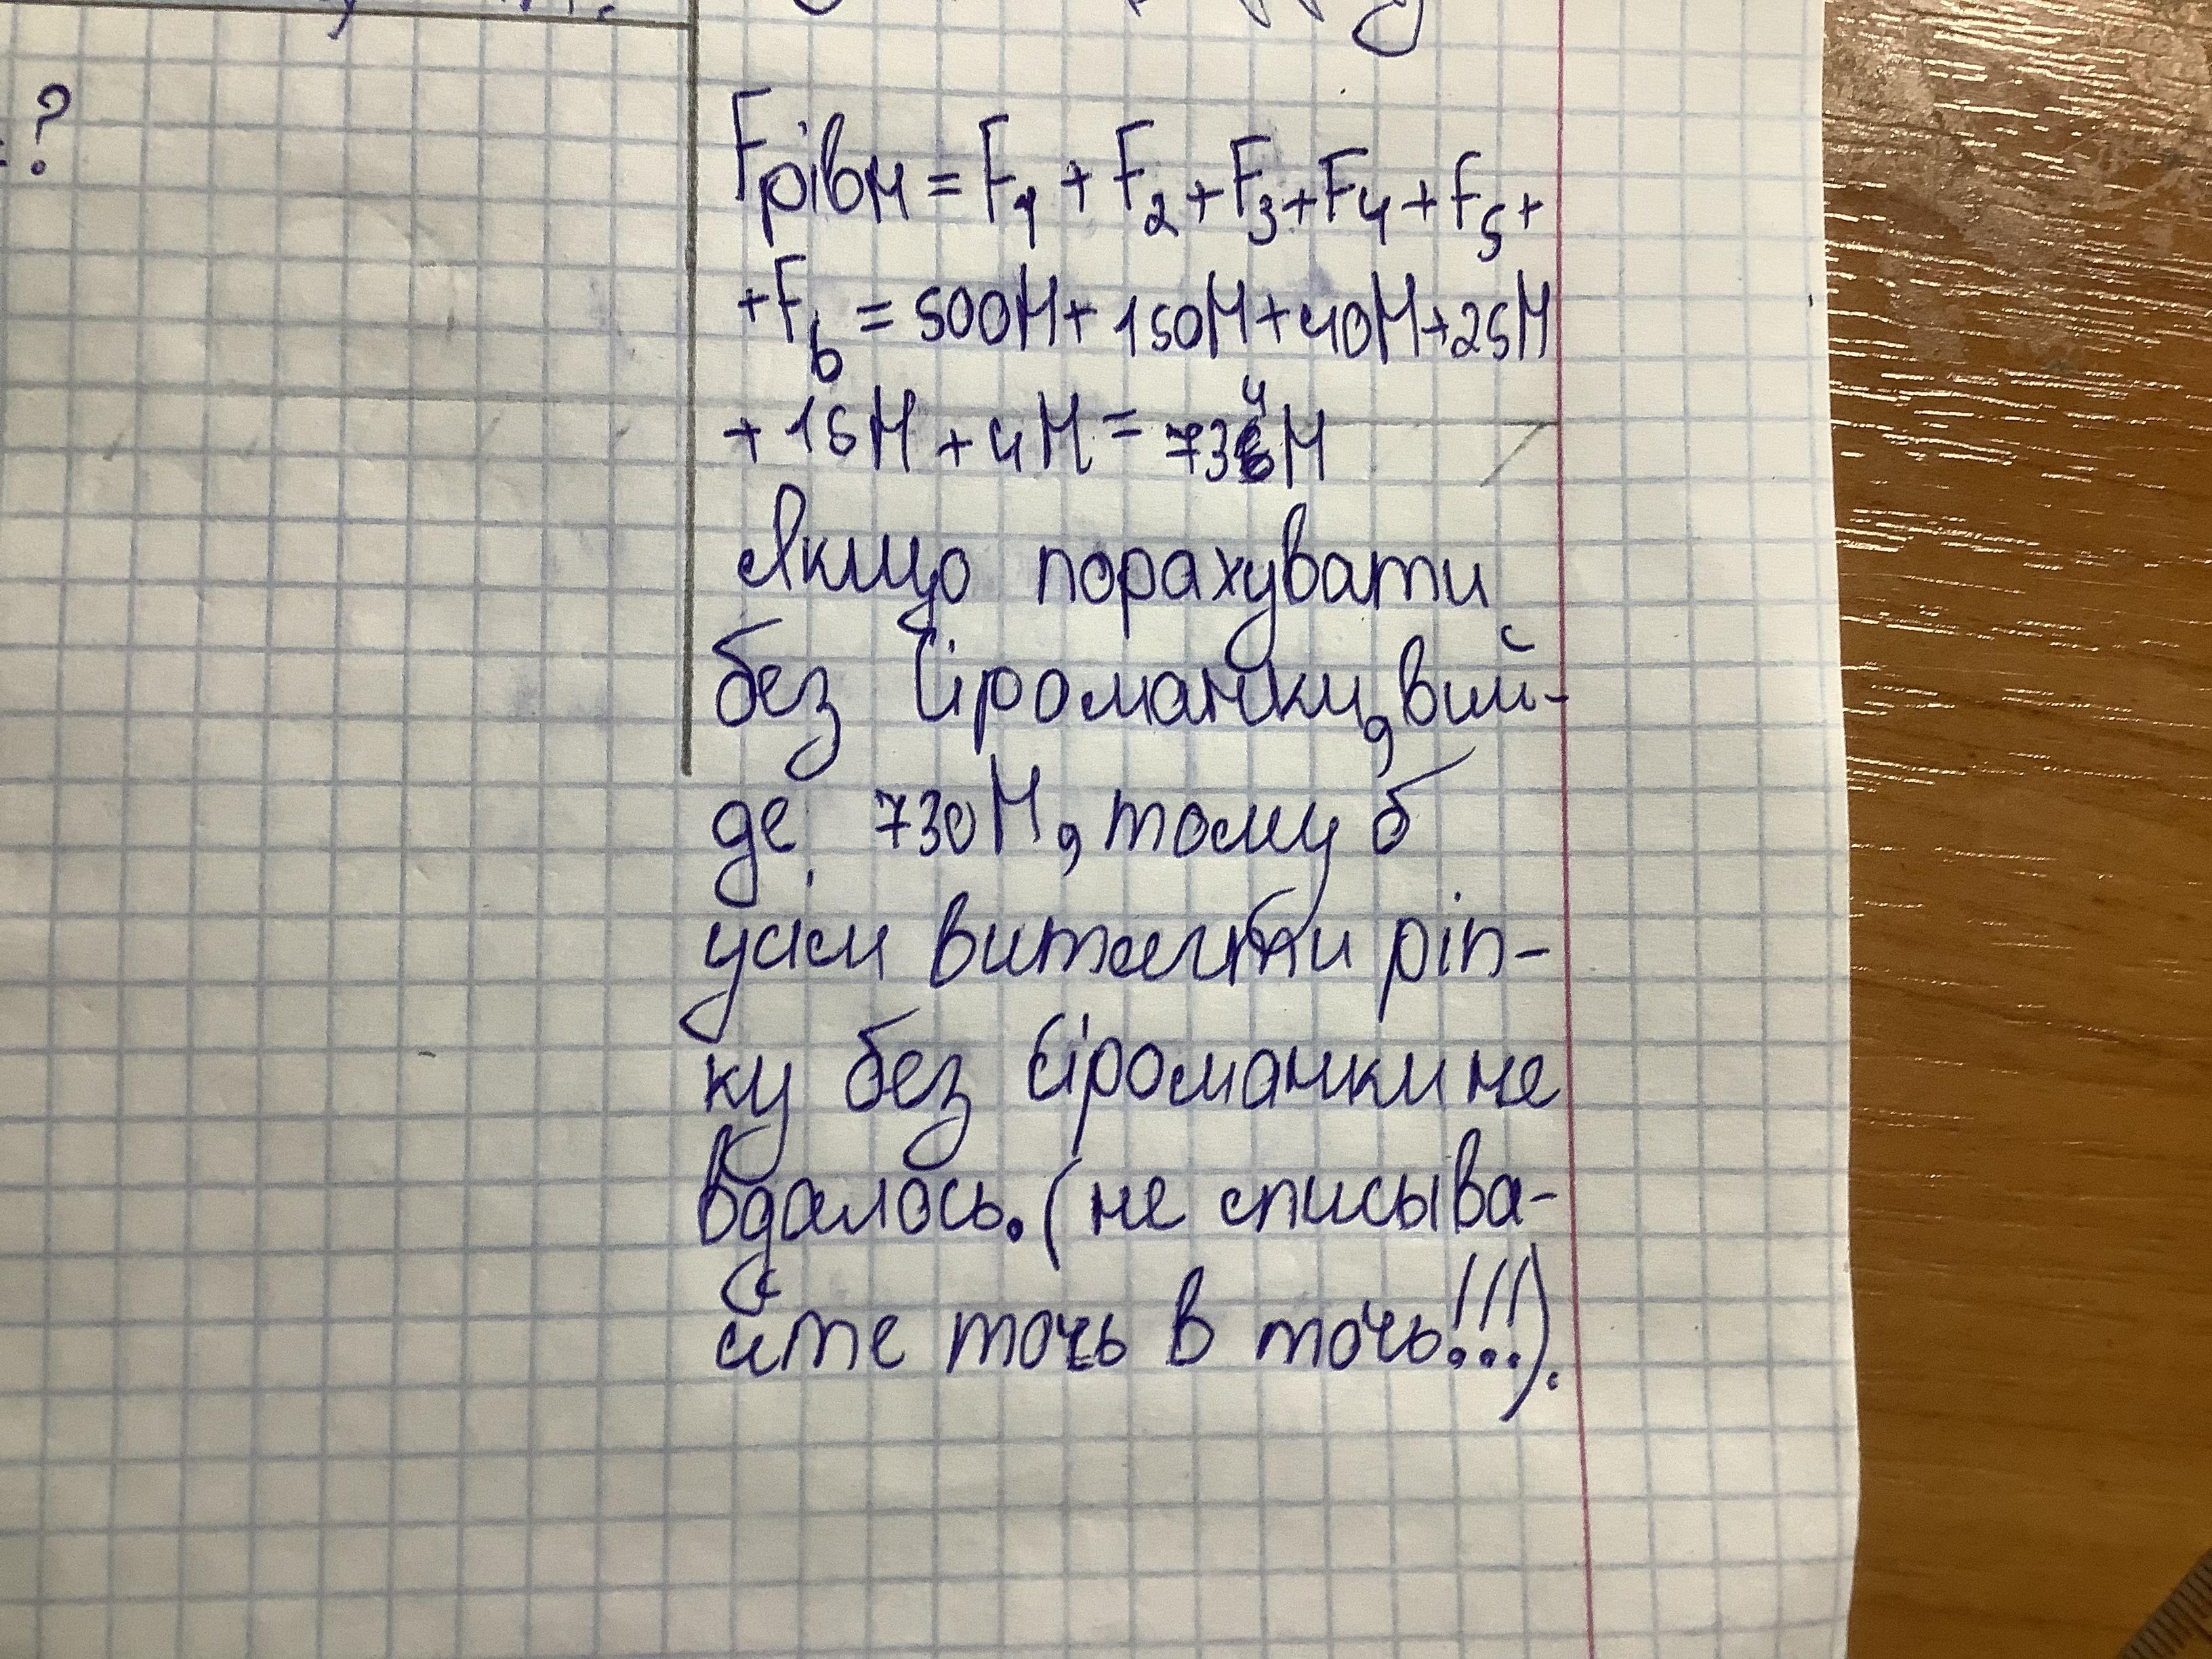 =?
Fрівн = F1 + F2 + F3 + F4 + F5 +
+ F6 = 500Н + 150Н + 40Н + 25Н
+ 15Н + 4Н = 734Н
Якщо порахувати
без Сіроманки, вий-
де 730Н, тому б
усім витягти ріп-
ку без Сіроманки не
вдалось. (не списыва-
йте точь в точь!!!).